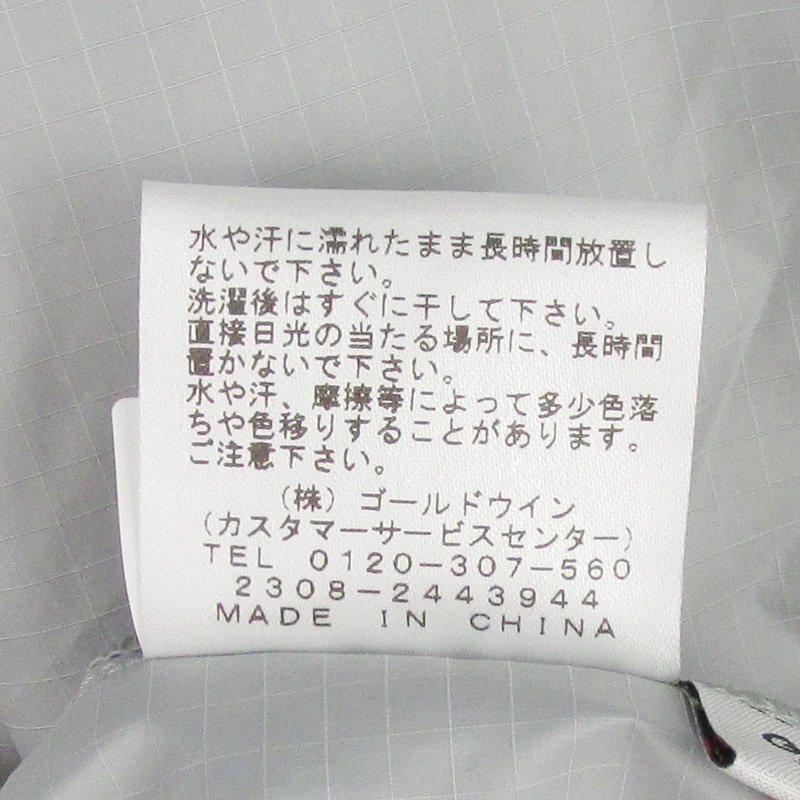 水や汗に濡れたまま長時間放置し
ないで下さい。
洗濯後はすぐに干して下さい。
直接日光の当たる場所に、長時間
置かないで下さい。
水や汗、摩擦等によって多少色落
ちや色移りすることがあります。
ご注意下さい。
(株)ゴールドウイン
(カスタマーサービスセンター)
TEL 0120-307-560
2308-2443944
MADE IN CHINA